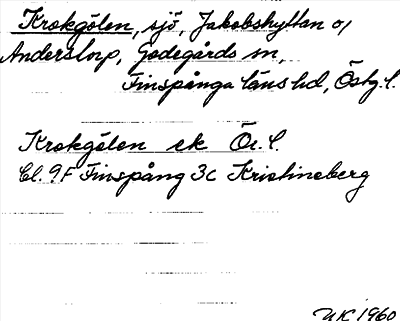 Krokgölen, sjö, Jakobshyttan o/
Anderstorp, Godegårds sn,
Finspånga läns hd, Östg. l.
Krokgölen ek Ör. l.
Bl. 9F Finspång 3c Kristineberg
1960